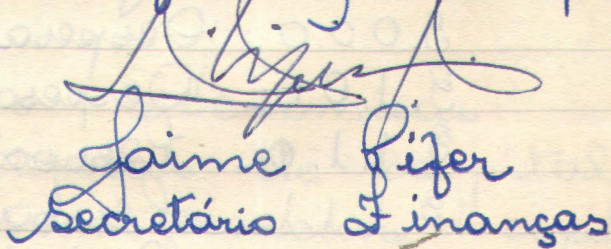 Jaime Pifer
Secretário Finanças